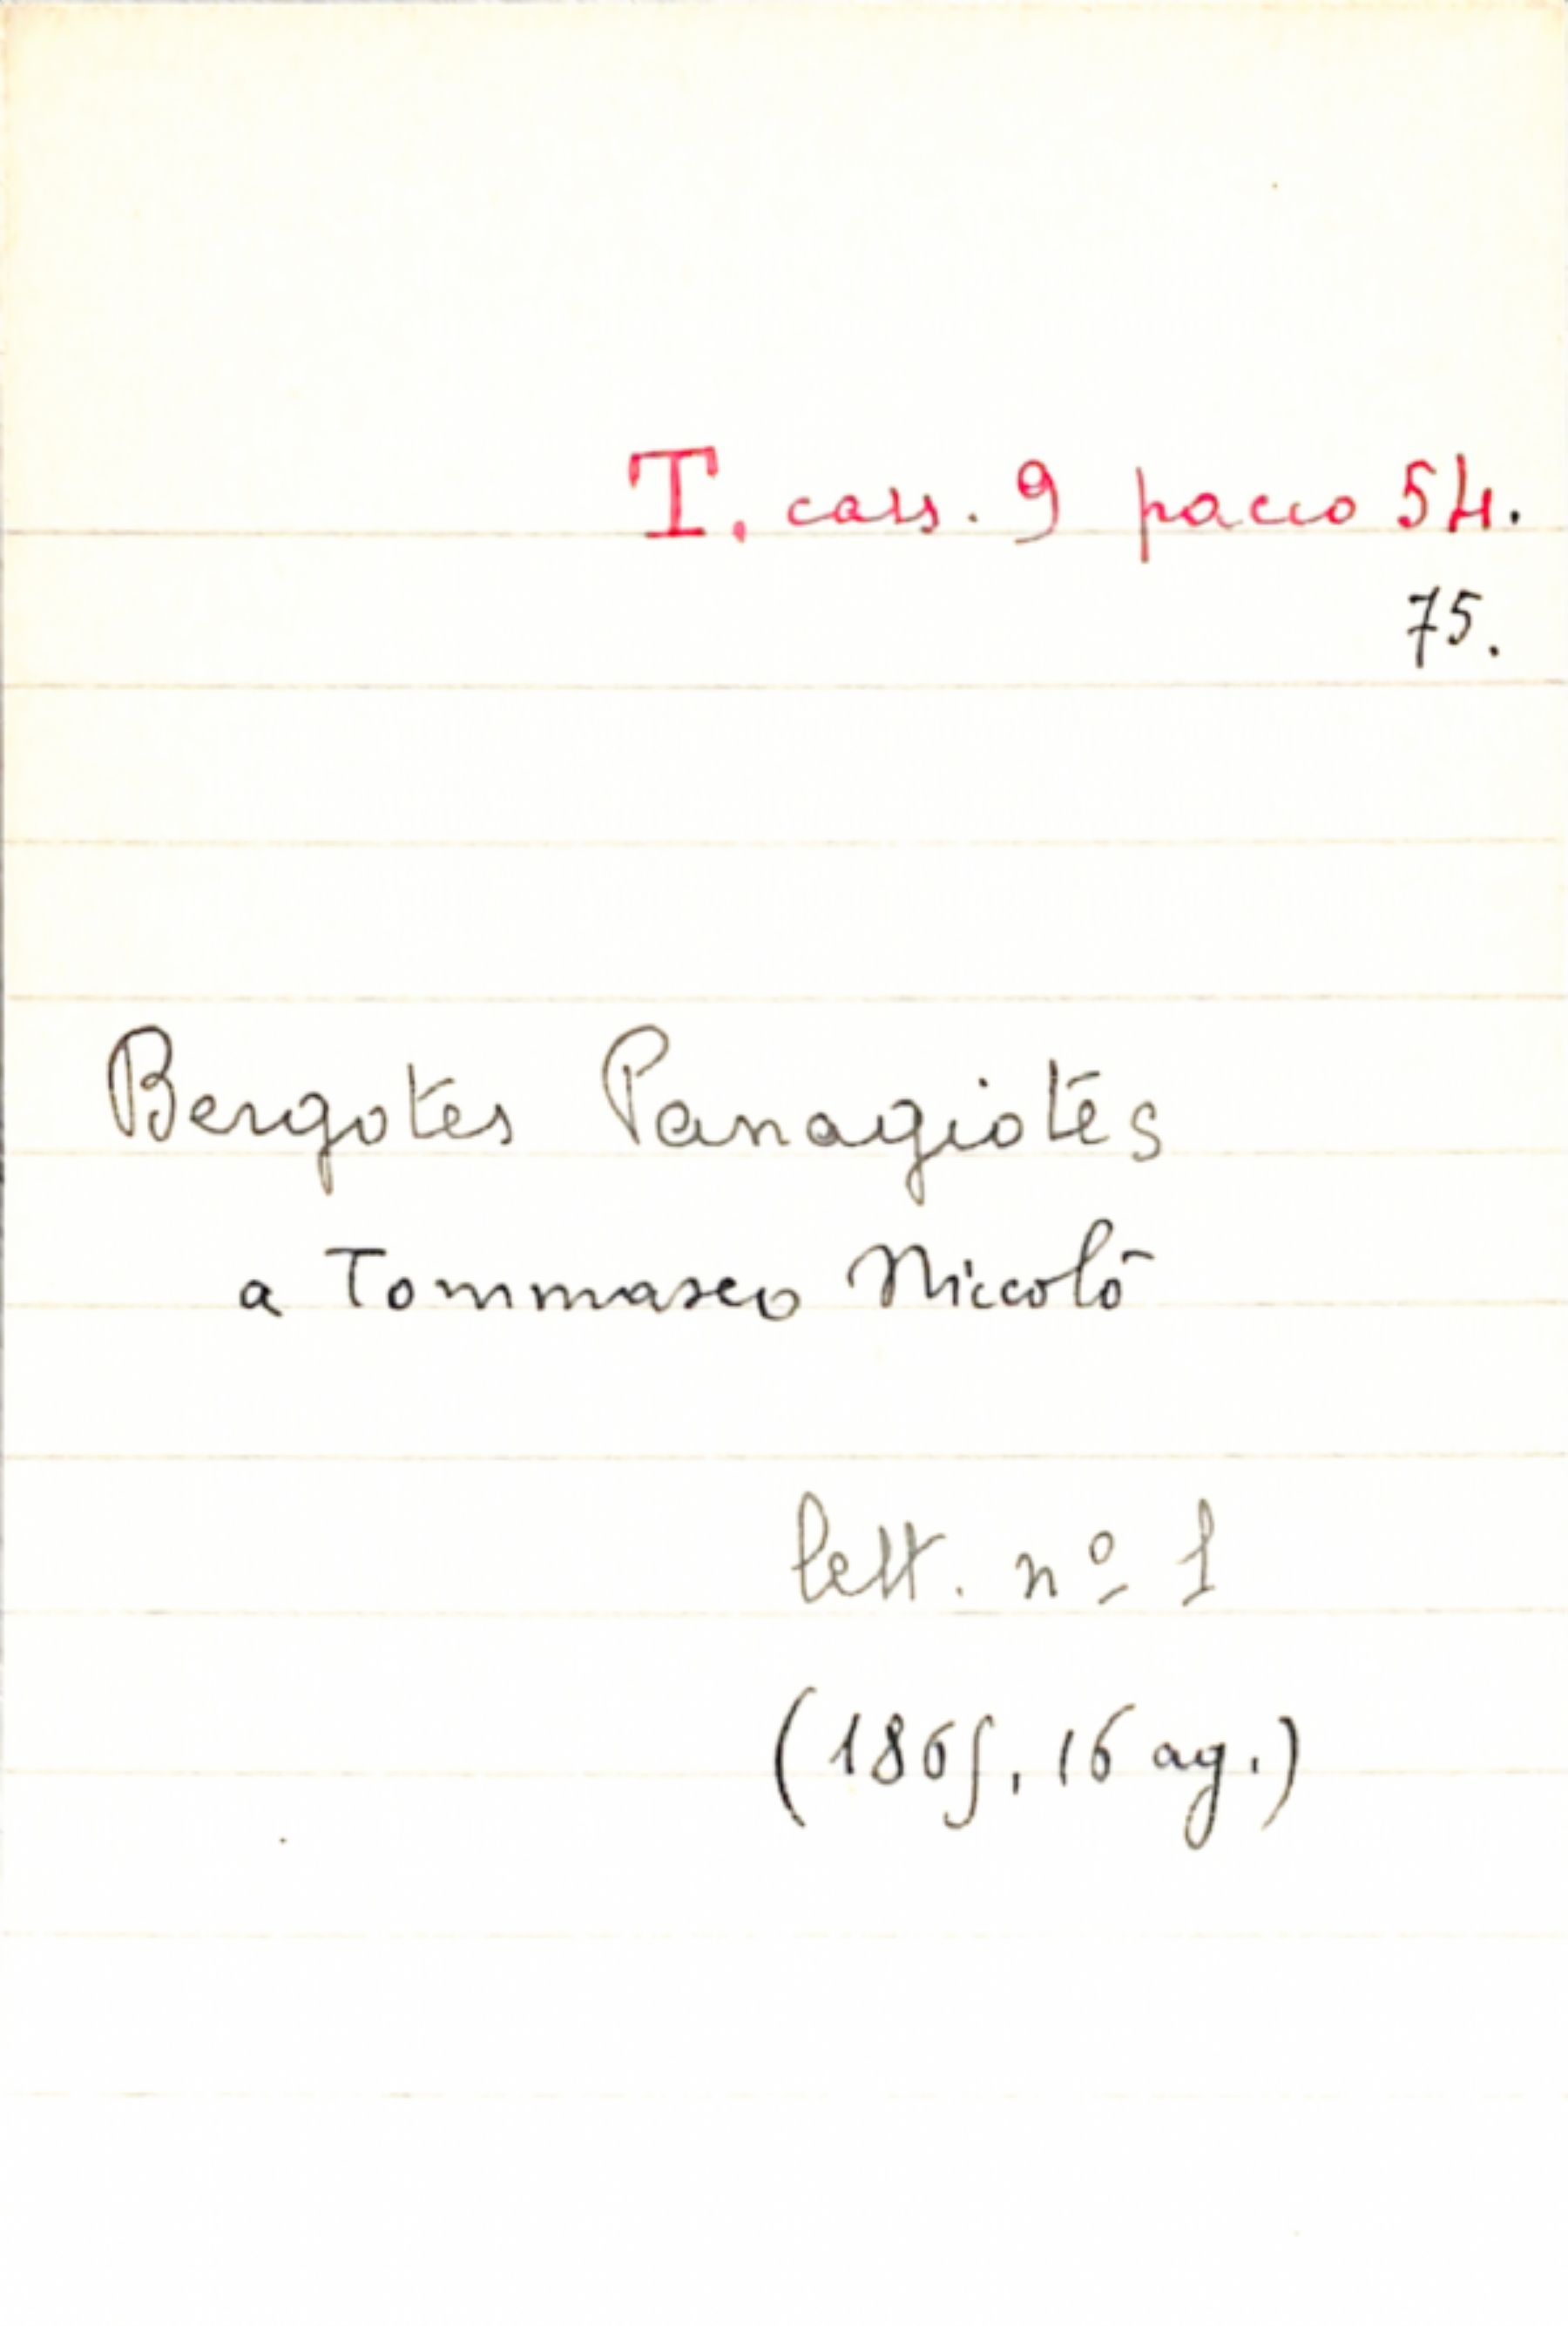 T. cass. 9 pacco 54.
75.
Bergotes Panagiotes
a Tommaseo Niccolò
lett. nº 1
(1865, 16 ag.)